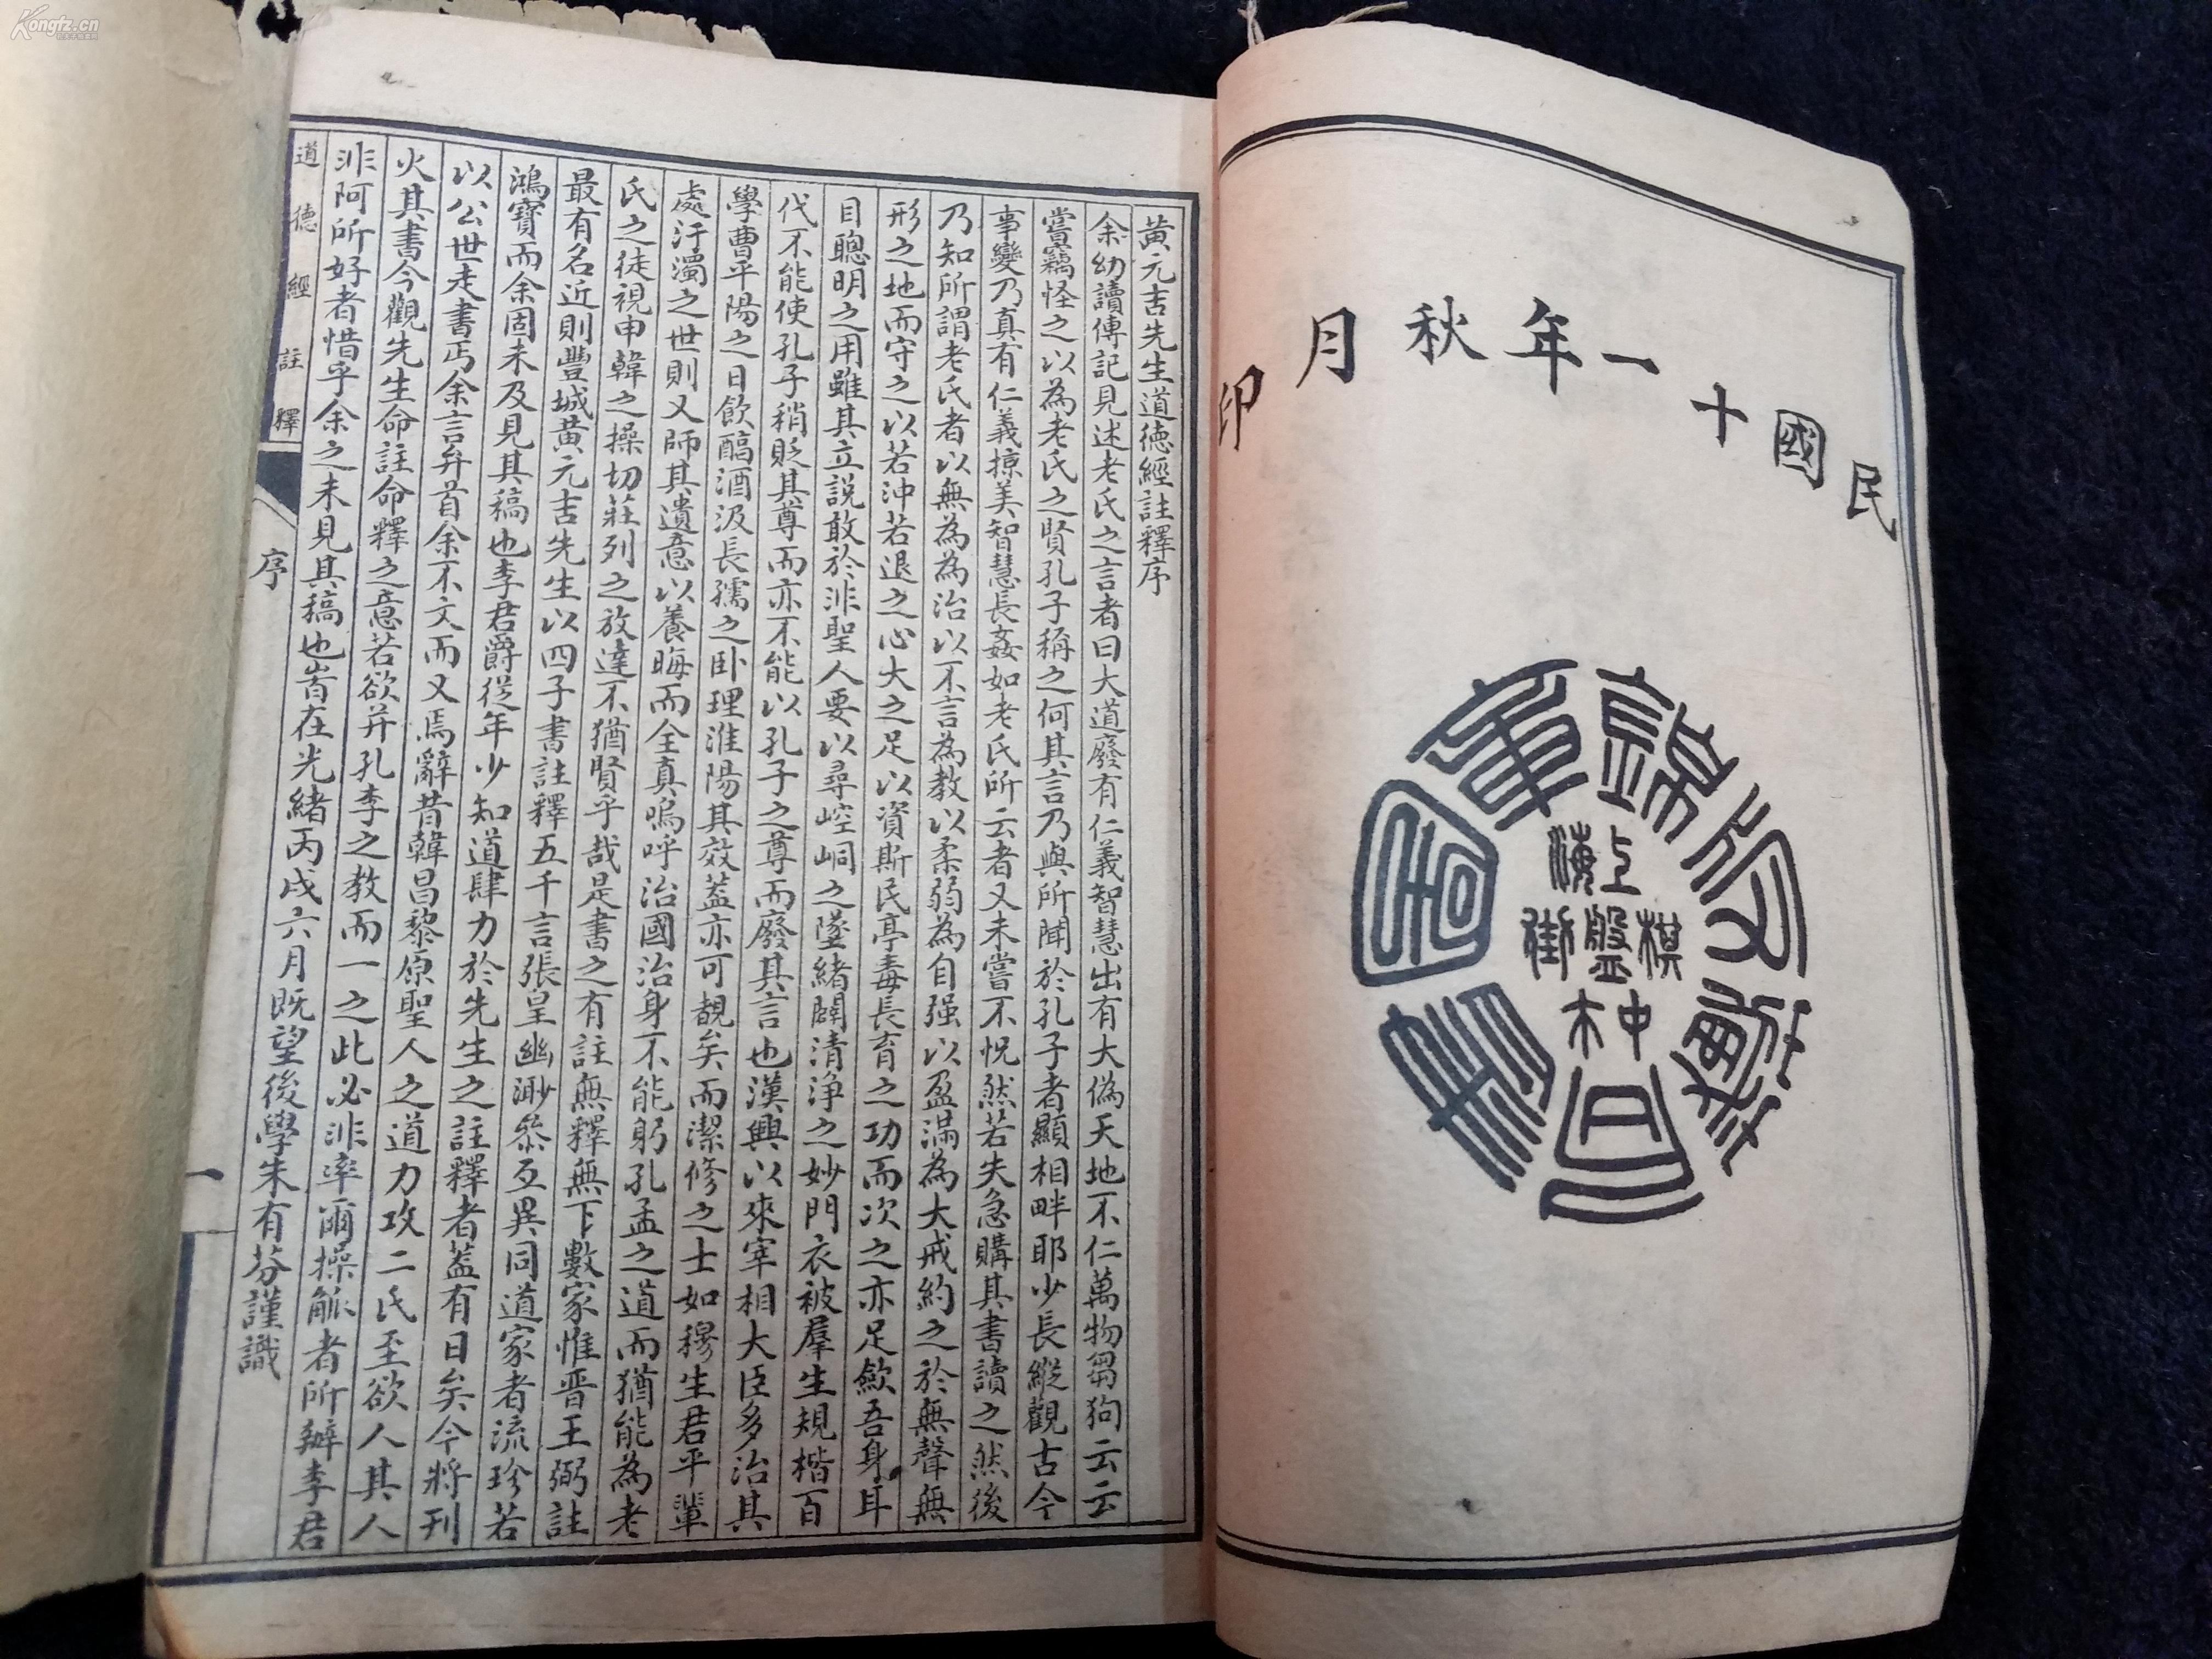 民國十一年秋月印
錦章圖書
上海
棋盤街
中
黃元吉先生道德經註釋序
余幼讀傳記見述老氏之言者曰大道廢有仁義智慧出有大偽天地不仁萬物芻狗云云
嘗竊怪之以為老氏之賢孔子稱之何其言乃與所聞於孔子者顯相畔耶少長縱觀古今
事變乃真有仁義掠美智慧長姦如老氏所云者又未嘗不怳然若失急購其書讀之然後
乃知所謂老氏者以無為為治以不言為教以柔弱為自強以盈滿為大戒約之於無聲無
形之地而守之以若沖若退之心大之足以資斯民亭毒長育之功而次之亦足歛吾身耳
目聰明之用雖其立說敢於非聖人要以尋崆峒之墜緒闢清淨之妙門衣被羣生規楷百
代不能使孔子稍貶其尊而亦不能以孔子之尊而廢其言也漢興以來宰相大臣多治其
學曹平陽之日飲醇酒汲長孺之卧理淮陽其效蓋亦可覩矣而潔修之士如穆生君平輩
處汙濁之世則又師其遺意以養晦而全真嗚呼治國治身不能躬孔孟之道而猶能為老
氏之徒視申韓之操切莊列之放達不猶賢乎哉是書之有註無釋無下數家惟晋王弼註
最有名近則豐城黃元吉先生以四子書註釋五千言張皇幽渺叅互異同道家者流珍若
鴻寶而余固未及見其稿也李君爵從年少知道肆力於先生之註釋者蓋有日矣今將刊
以公世走書丐余言弁首余不文而又焉辭昔韓昌黎原聖人之道力攻二氏至欲人其人
火其書今觀先生命註命釋之意若欲并孔李之教而一之此必非率爾操觚者所辦李君
非阿所好者惜乎余之未見其稿也峕在光緒丙戌六月既望後學朱有芬謹識
道德經註釋
序
一
Kongfz.cn